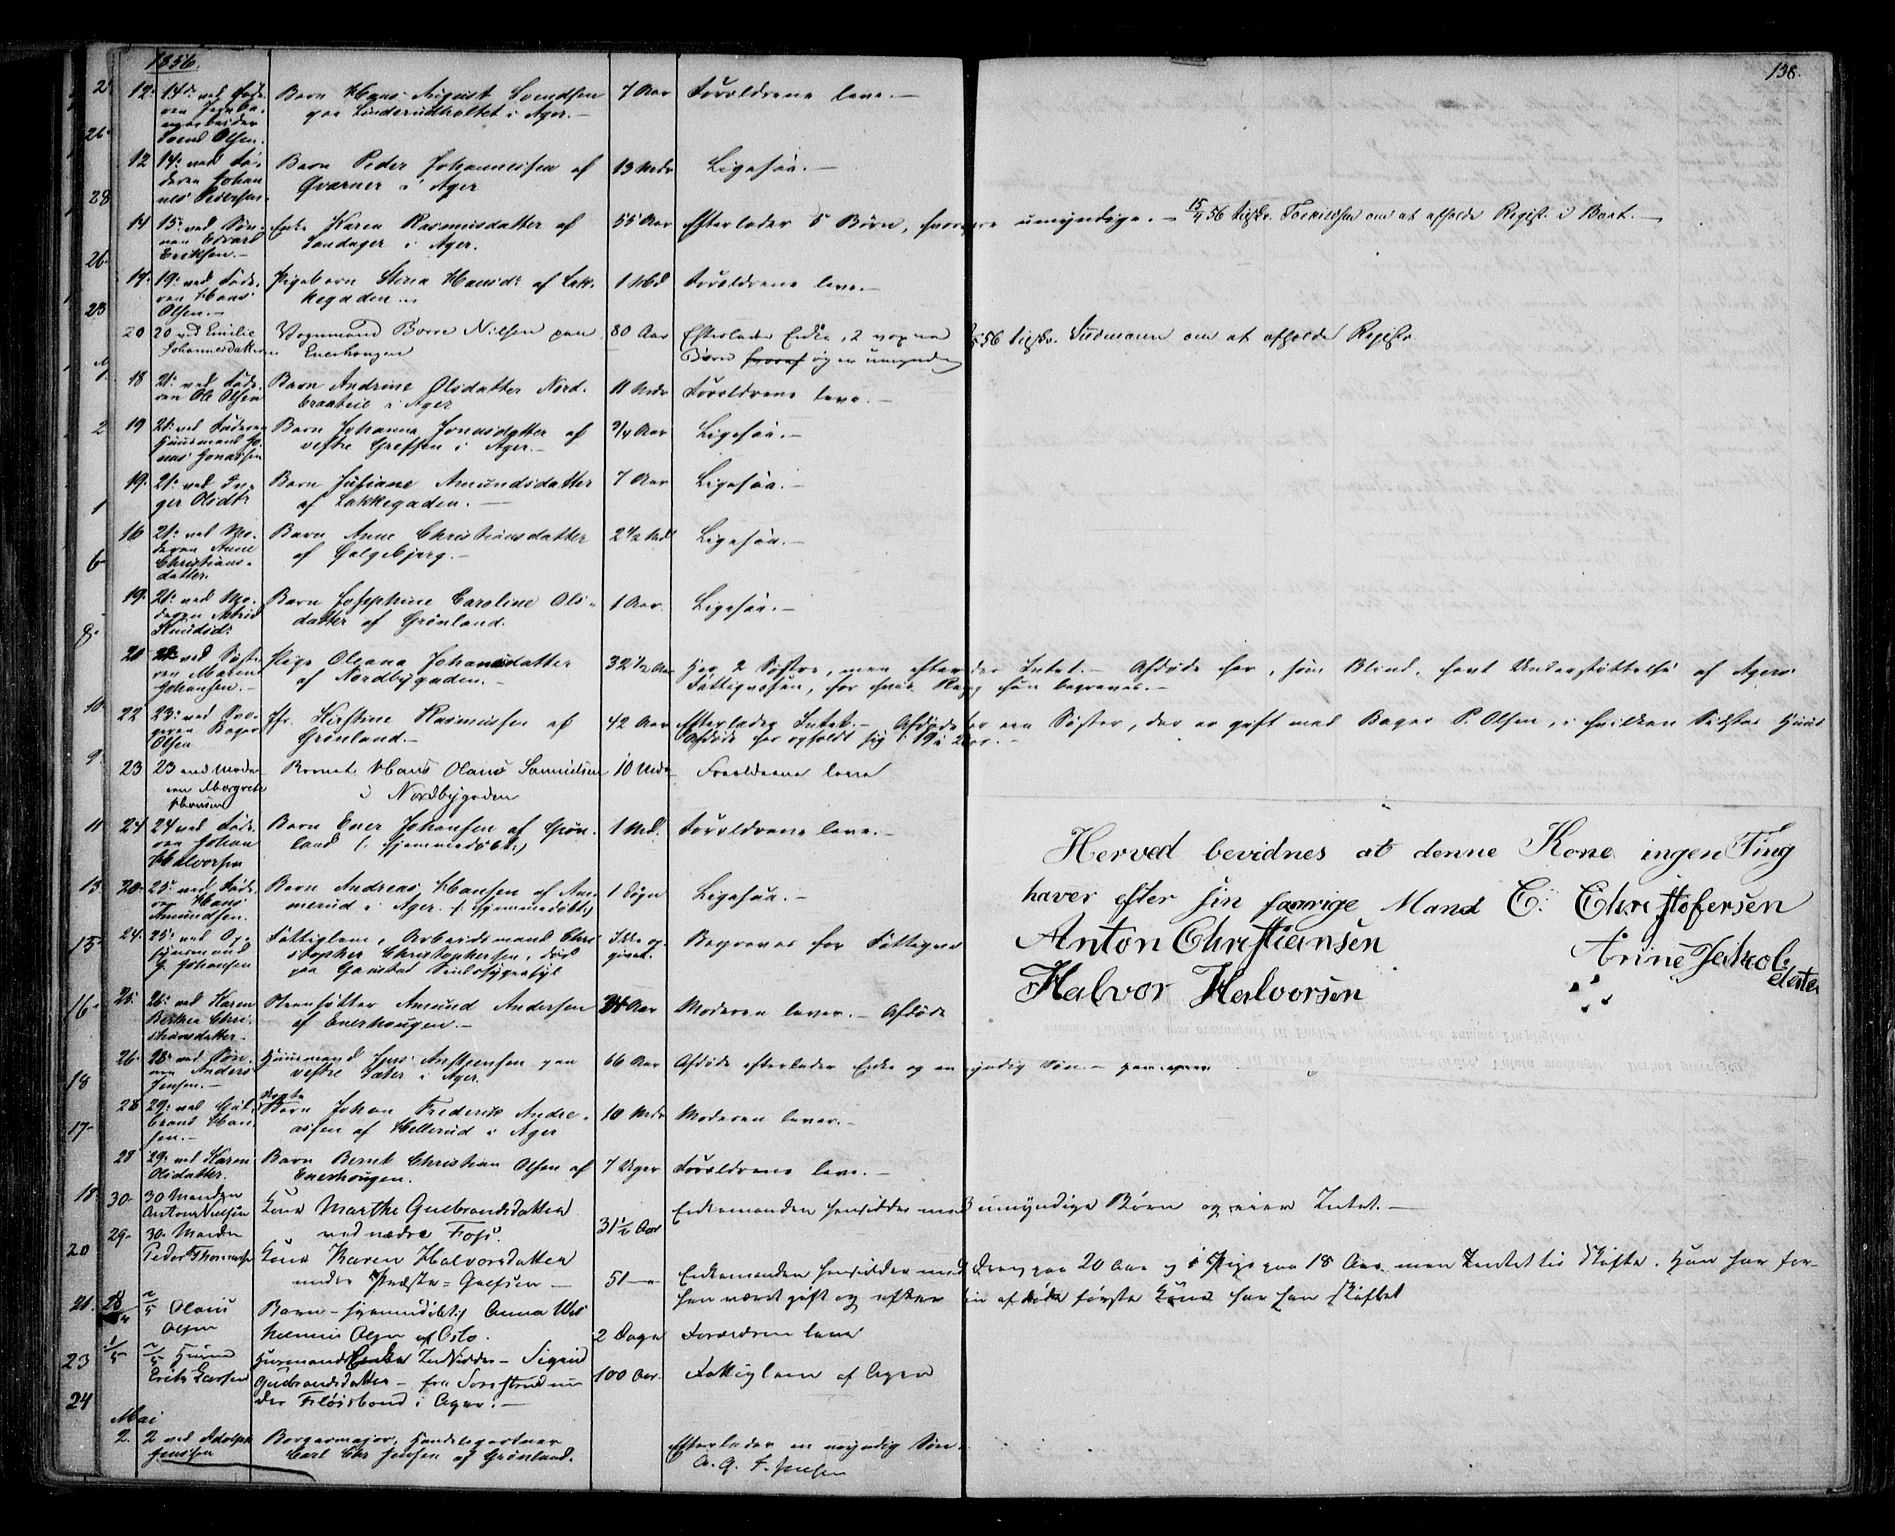 1856.
138.
12. 14d: ved Fade-
ren Jernba-
nearbeider
Svend Olsen.
Barn Hans August Svendsen
paa Linderudholtet i Ager.-
7 Aar
Forældrene leve.-
12 14: ved Fa-
deren Johan-
nes Pedersen.
Barn Peder Johannessen af
Qværner i Ager
13 Mdr
Ligesaa.-
14 15: ved Søn-
nen Edvard
Eriksen.-
Enke Karen Rasmusdatter af
Sandager i Ager.
55 Aar
Efterlader 5 Børn, hvoraf umyndige.- 15/4 56 tilskr. Torkildsen om at afholde Regist. i Boet.-
14. 19: ved Fade-
ren Hans
Olsen.-
Pigebarn Stina Hansd: af Lak-
kegaden.-
1 Md
Forældrene leve.-
20 20 ved Emilie
Johannesdatter
Vognmand Borre Nilsen paa
Enerhougen
80 Aar
Efterlader Enke, 2 voxne
Børn hvoraf og en umyndig
56 tilskr. Sudmann om at afholde Registr.
18 21: ved Fade-
ren Ole Olsen
Barn Andrine Olsdatter Nord-
braateie i Ager
11 Mdr
Forældrene leve.-
19 21: ved Faderen
Huusmand Jo-
nas Jonassen
Barn Johanne Jonasdatter af
vestre Grefsen i Ager.-
3/4 Aar
Ligesaa.-
19. 21: ved In-
ger Olsdtr
Barn Juliane Amundsdatter
af Lakkegaden.-
7 Aar
Ligesaa.-
16 21: ved Mo-
deren Anne
Christians-
datter.
Barn Anne Christiansdatter
af Galgebjerg.-
2 1/2 Md
Ligesaa.-
19. 21: ved Mo-
deren Astrid
Knudsd:
Barn Josephine Caroline Ols-
datter af Grønland.
1 Aar.
Ligesaa.-
20 22: ved Søste-
ren Maren
Johansen.-
Pige Oleana Johansdatter
af Nordbygaden.-
32 1/2 Aar
Har 2 Søstre, men efterlader Intet.- Afdøde har, som Blind, havt Understøttelse af Agers
Fattigvæsen, for hvis Regning hun begraves.-
22 23: ved Svo-
geren Bager
Olsen
Jfr. Kirstine Rasmussen af
Grønland.-
42 Aar
Efterlader Intet.- Afdøde har en Søster, der er gift med Bager P. Olsen, i hvilken Sidstes Huus
Afdøde har opholdt sig i 19 Aar.-
23 23 ved Mode-
ren Margrete
Hansen
Barnet Hans Olaus Samuelsen
i Nordbygaden
10 Mdr
Forældrene leve
24 24 ved Fade-
ren Johan
Halvorsen
Barn Ener Johansen af Grøn-
land /: hjemmedøbt:/
1 Md.
Forældrene leve.-
20. 25: ved Fade-
ren Hans
Amundsen.
Barn Andreas Hansen af Am-
merud i Ager. /: hjemmedøbt:/
1 Døgn
Ligesaa.-
24. 25: ved Op-
synsmand
G. Johansen
Fattiglem, Arbeidsmand Chri-
stopher Christophersen, død
paa Gaustad Sindssygeasyl
Ikke op-
givet.
Begraves for Fattigvæs
25. 26: ved Karen
Berthea Chri-
stiansdatter.-
Steensætter Amund Andersen
af Enerhougen.-
24 Aar
Moderen lever.- Afdøde
26. 28: ved Søn-
nen Anders
Jensen.-
Huusmand Jens Anstensen paa
vestre Sæter i Ager.
66 Aar
Afdøde efterlader Enke og en myndig Søn.-
28 29: ved Gul-
brand Han-
sen.-
Barn Johan Frederik Andre-
assen af Hellerud i Ager
10 Mdr
Moderen lever.-
28 29: ved Karen
Olsdatter.
Barn Bernt Christian Olsen af
Enerhougen.
7 Uger
Forældrene leve.-
30. 30 Manden
Anton Nielsen
Kone Marthe Gulbrandsdatter
ved nedre Foss.
31 1/2 Aar
Enkemanden hensidder med 3 umyndige Børn og eier Intet.-
29. 30. Manden
Peder Thomassen
Kone Karen Halvorsdatter
under Præste-Grefsen-
51
Enkemanden hensidder med Dreng paa 20 Aar og 1 Pige paa 18 Aar men Intet til Skifte. Han har før-
hen været gift og efter sin afdøde første Kone har han skiftet
28/4 2/5 Olaus
Olsen
Barn- hjemmedøbt Anna Wil-
helmine Olsen af Oslo.
2 Dage
Forældrene leve
1/5 2/5 Huusmd
Erik Larsen
Huusmands Enke Sigrid
Gulbrandsdatter- fra un-
der Fløisbond i Ager.-
100 Aar.
Fattiglem af Ager
Mai
2. 2 ved Adolph
Jenssen
Borgermajor, Handelsgartner
Carl Chr. Jensen af Grønland.
Efterlader en myndig Søn.
A. G. F. Jensen
Herved bevidnes at denne Kone ingen Ting
haver efter sin forrige Mand C: Christofersen
Anton Christiansen
Anne Jakobs
datter
Halvor Halvorsen